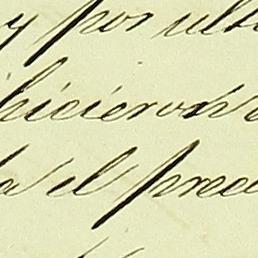 y por ult
hicieron
el prec